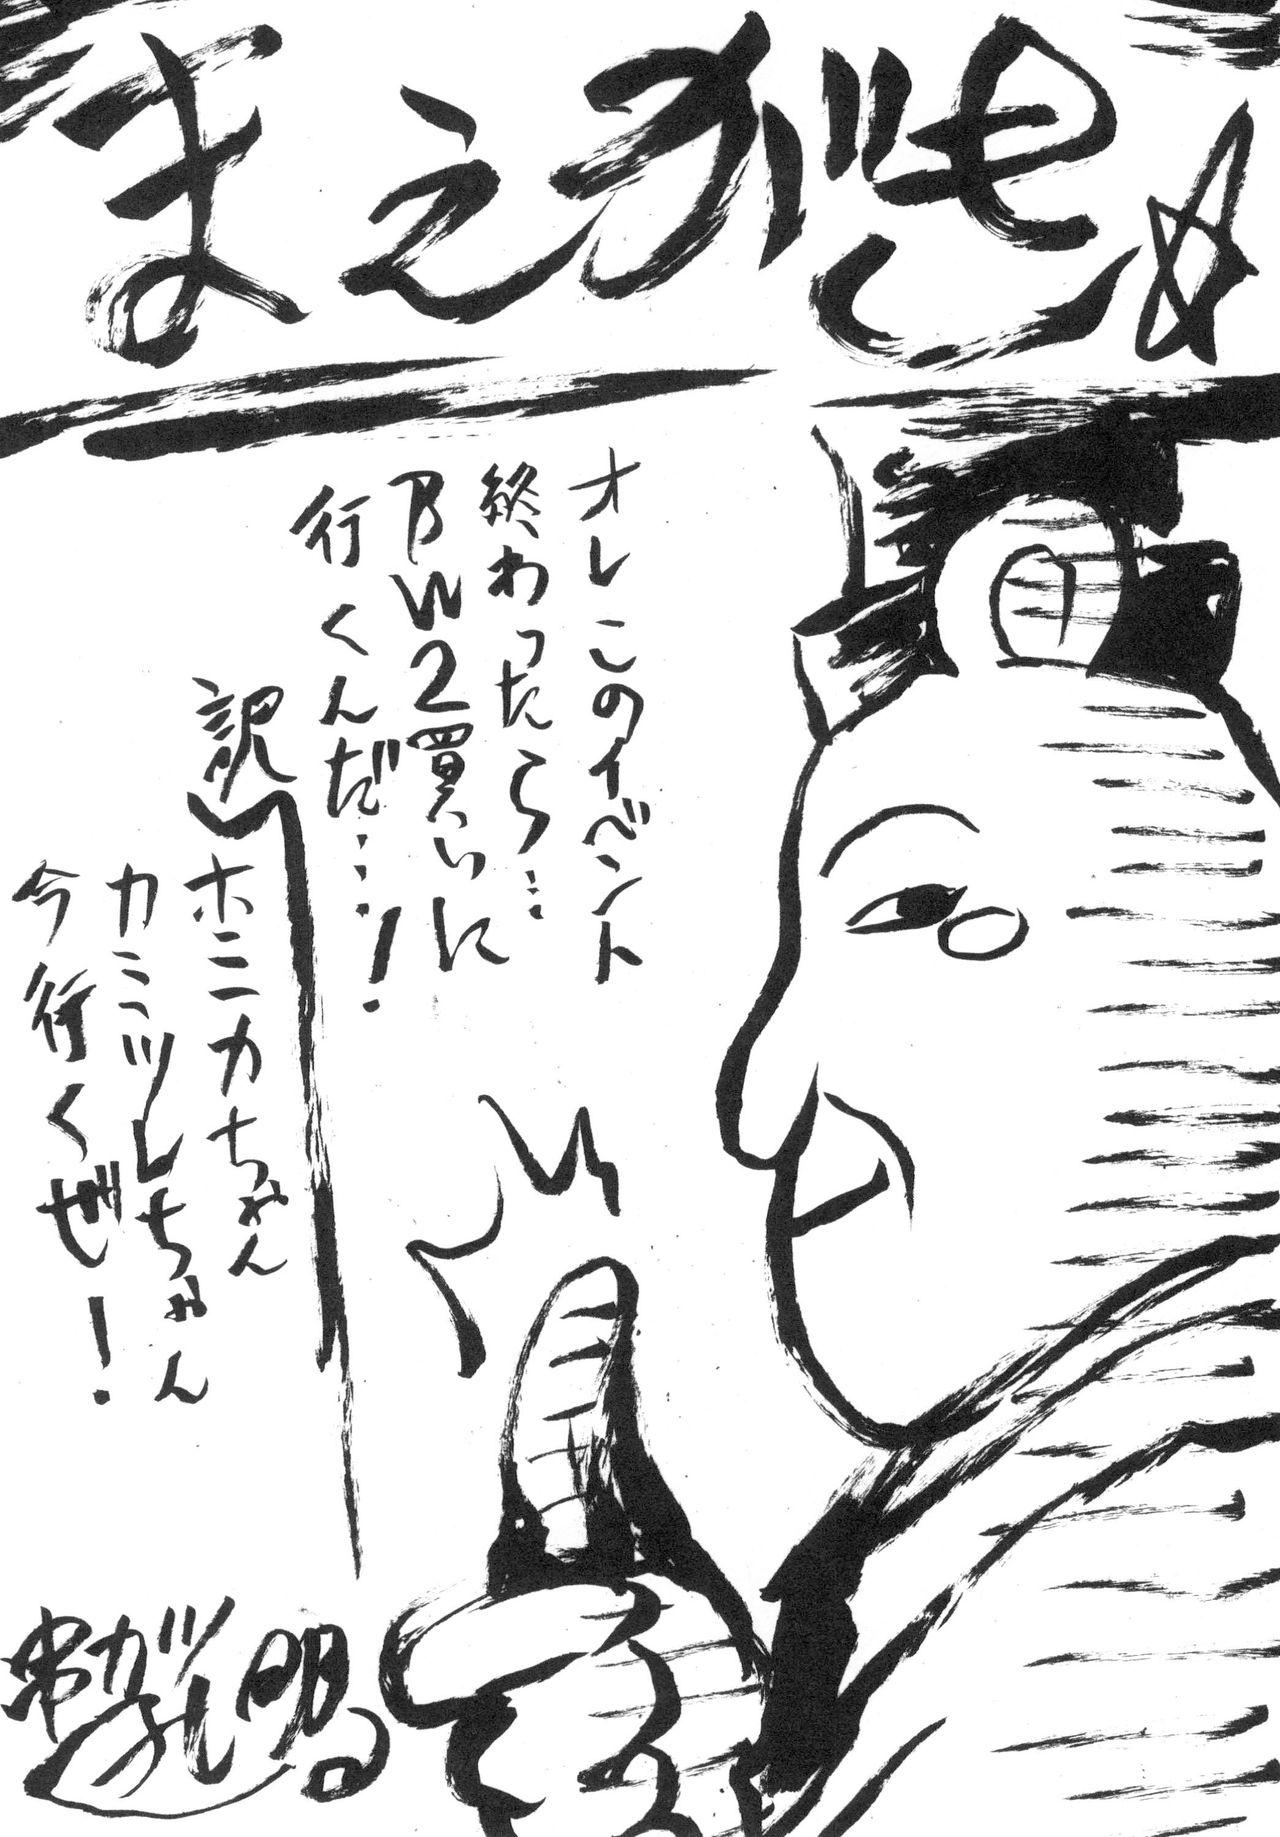 まえがき☆
オレこのイベント
終わったら…
BW2買いに
行くんだ…！
訳
ホミカちゃん
カミツレちゃん
今行くぜ！